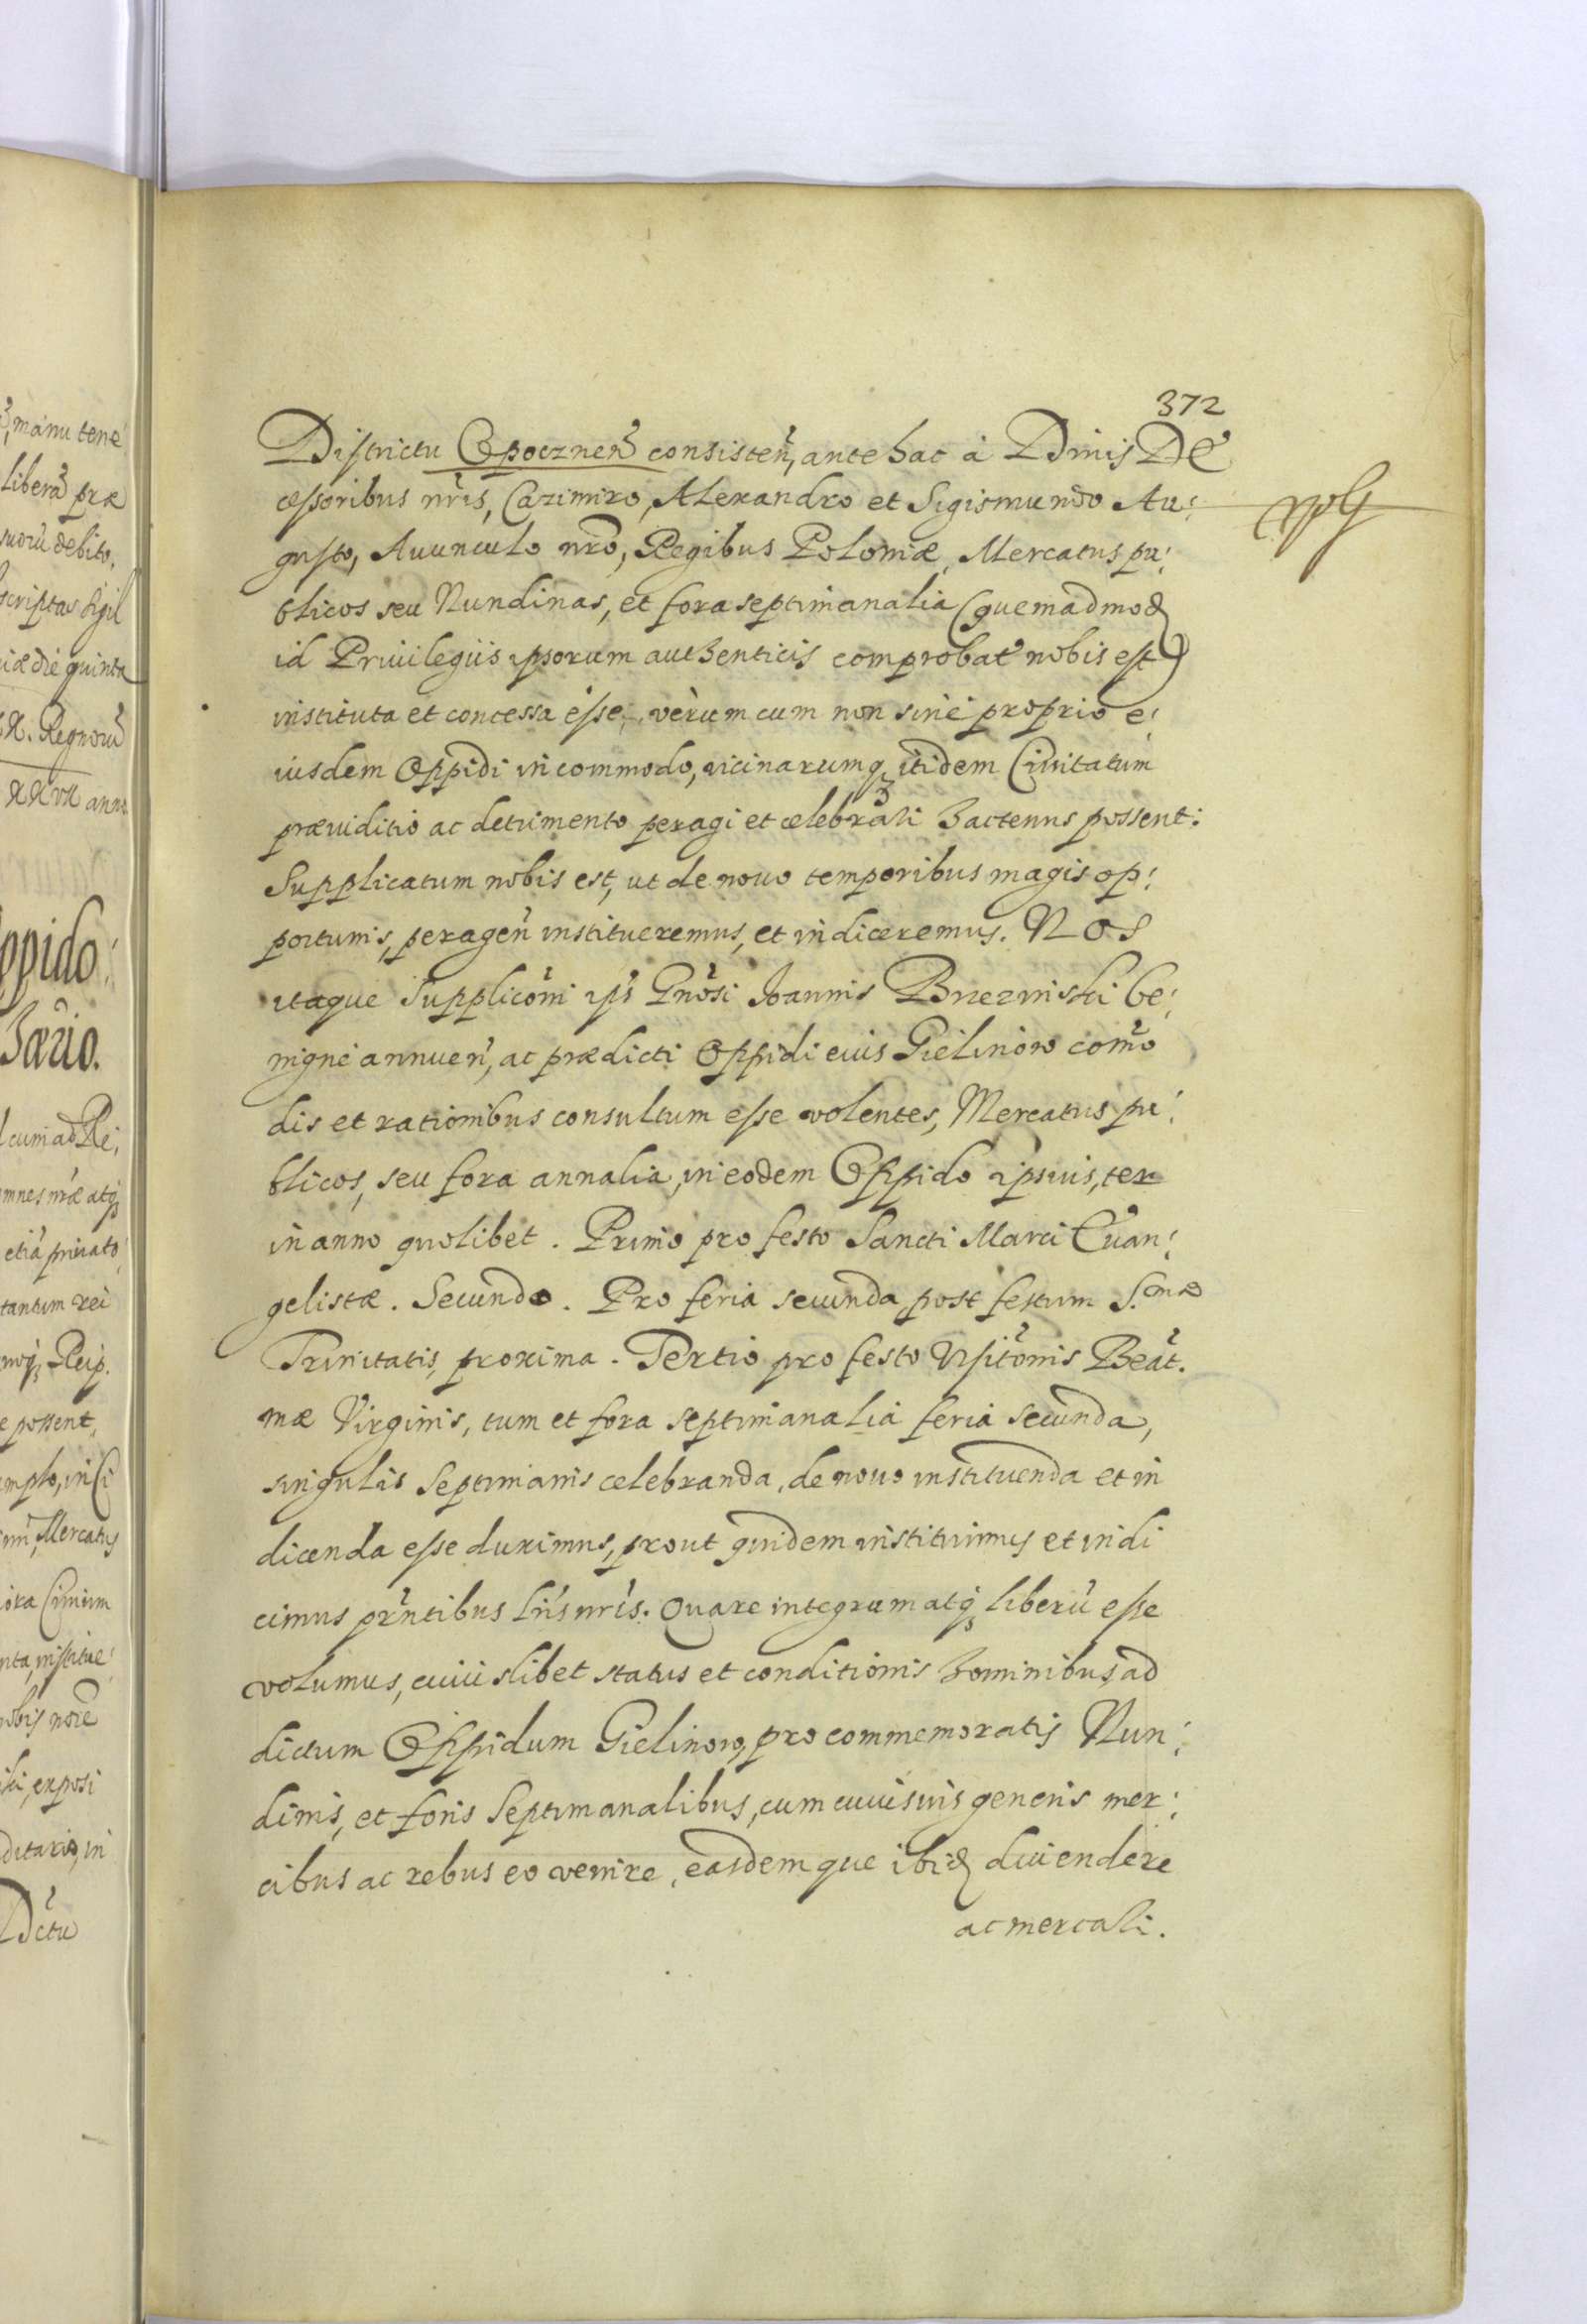 372
Districtu Opocznen̄ consisten̄, ante hac à Dīnis De
cessoribus nr̄is, Cazimiro, Alexandro et Sigismundo Au:
gusto, Auunculo nrō, Regibus Poloniæ, Mercatus pu:
blicos seu Nundinas, et fora septimanalia (quemadmod
id Priuilegiis ipsorum authenticis comprobat̄ nobis est)
instituta et concessa esse, verùm cum non sinè proprio e:
iusdem Oppidi incommodo, vicinarumq itidem Ciuitatum
præuiditio ac detrimento peragi et celebrari hactenus possent:
Supplicatum nobis est, ut de nouo temporibus magis op:
portunis, peragen̄ institueremus, et indiceremus. NOS
itaque Supplicōni ips̄ Gnōsi Joannis Brzezinski be:
nigné annuen̄, ac prædicti Oppidi eius Gielniow com̄o
dis et rationibus consultum esse volentes, Mercatus pu:
blicos, seu fora annalia, in eodem Oppido ipsius, ter
in anno quolibet. Primo pro festo Sancti Marci Euan:
gelistæ. Secundo. Pro feria secunda post festum S.mæ
Trinitatis, proxima. Tertio pro festo Vsitōnis Beāt.
mæ Virginis, tum et fora septimanalia feria secunda,
singulis Septimanis celebranda, de nouo instituenda et in
dicenda esse duximus, prout quidem instituimus et indi
cimus prn̄tibus lrīs nrīs. Quare integrum atq liberū esse
volumus, cuiuslibet status et conditionis hominibus, ad
dictum Oppidum Gielniow, pro commemoratis Nun:
dinis, et foris Septimanalibus, cum cuiusuis generis mer:
cibus ac rebus eo venire, easdemque ibid diuendere
ac mercali.